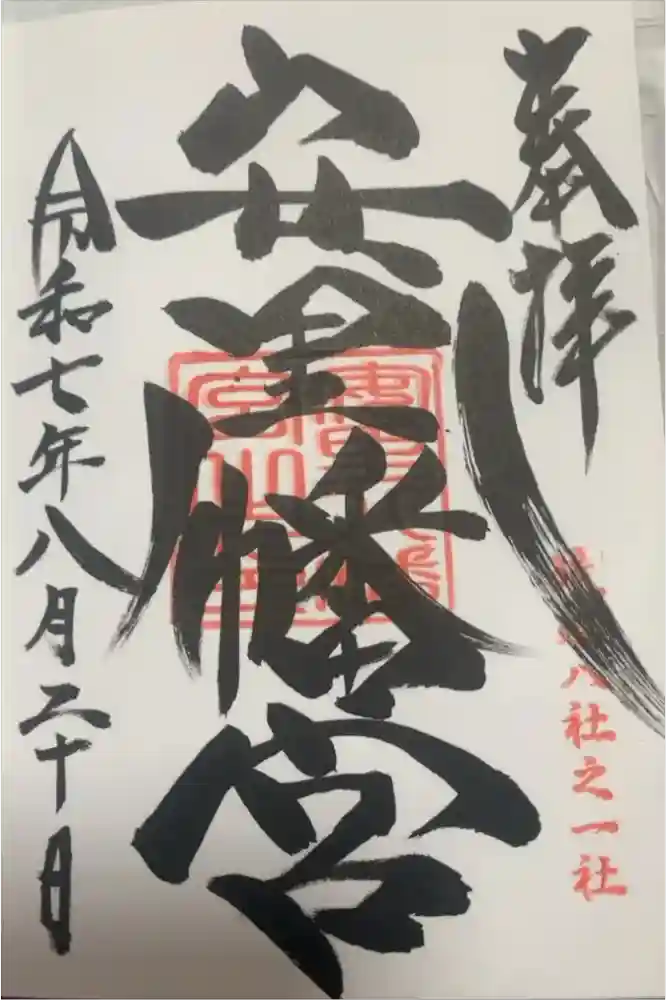 奉拝
八社之一社
安里八幡宮
令和七年八月二十日